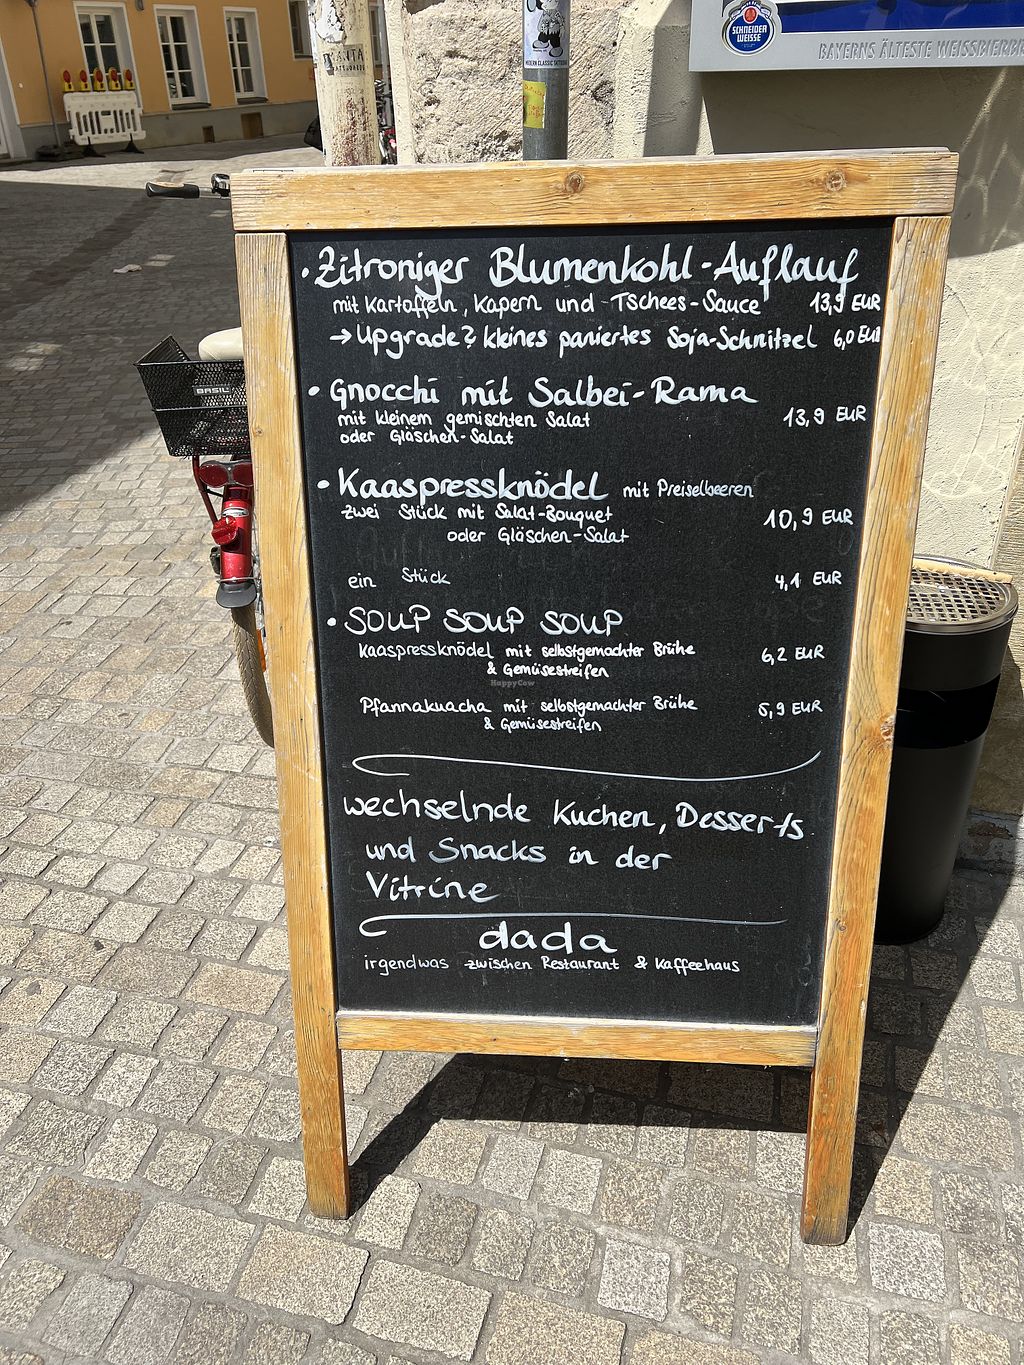 SCHNEIDER
WEISSE
BAYERNS ÄLTESTE WEISSBIERBR
MODERN CLASSIC TATTOO
BASIL
• Zitroniger Blumenkohl-Auflauf
mit Kartoffeln, Kapern und Tschees-Sauce 13,9 EUR
→ Upgrade? kleines paniertes Soja-Schnitzel 6,0 EUR
• Gnocchi mit Salbei-Rama
mit kleinem gemischten Salat 13,9 EUR
oder Gläschen-Salat
• Kaaspressknödel mit Preiselbeeren
zwei Stück mit Salat-Bouquet 10,9 EUR
oder Gläschen-Salat
ein Stück 4,1 EUR
• SOUP SOUP SOUP
Kaaspressknödel mit selbstgemachter Brühe 6,2 EUR
& Gemüsestreifen
HappyCow
Pfannakuacha mit selbstgemachter Brühe 5,9 EUR
& Gemüsestreifen
wechselnde Kuchen, Desserts
und Snacks in der
Vitrine
dada
irgendwas zwischen Restaurant & Kaffeehaus